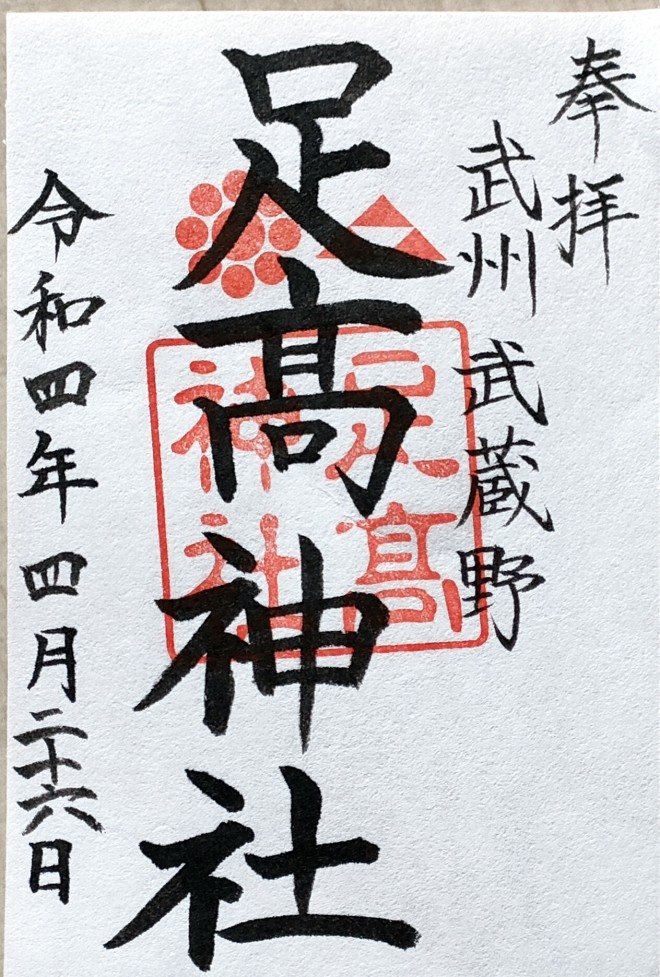 奉拝
武州 武蔵野
足髙神社
足髙
神社
令和四年 四月二十六日